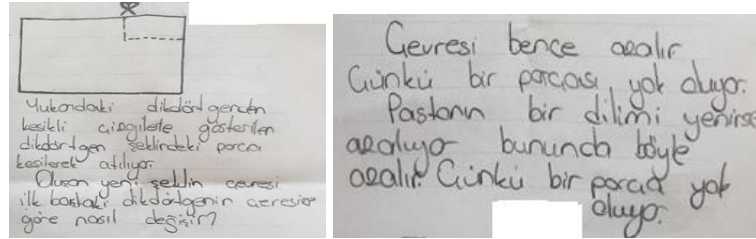 Yukarıdaki dikdörtgenden
kesikli çizgilerle gösterilen
dikdörtgen şeklindeki parça
kesilerek atılıyor.
Oluşan yeni şeklin çevresi
ilk baştaki dikdörtgenin çevresine
göre nasıl değişir?
Çevresi bence azalır
Çünkü bir parçası yok oluyor.
Pastanın bir dilimi yenirse
azalıyor bununda böyle
azalır. Çünkü bir parça yok
oluyor.